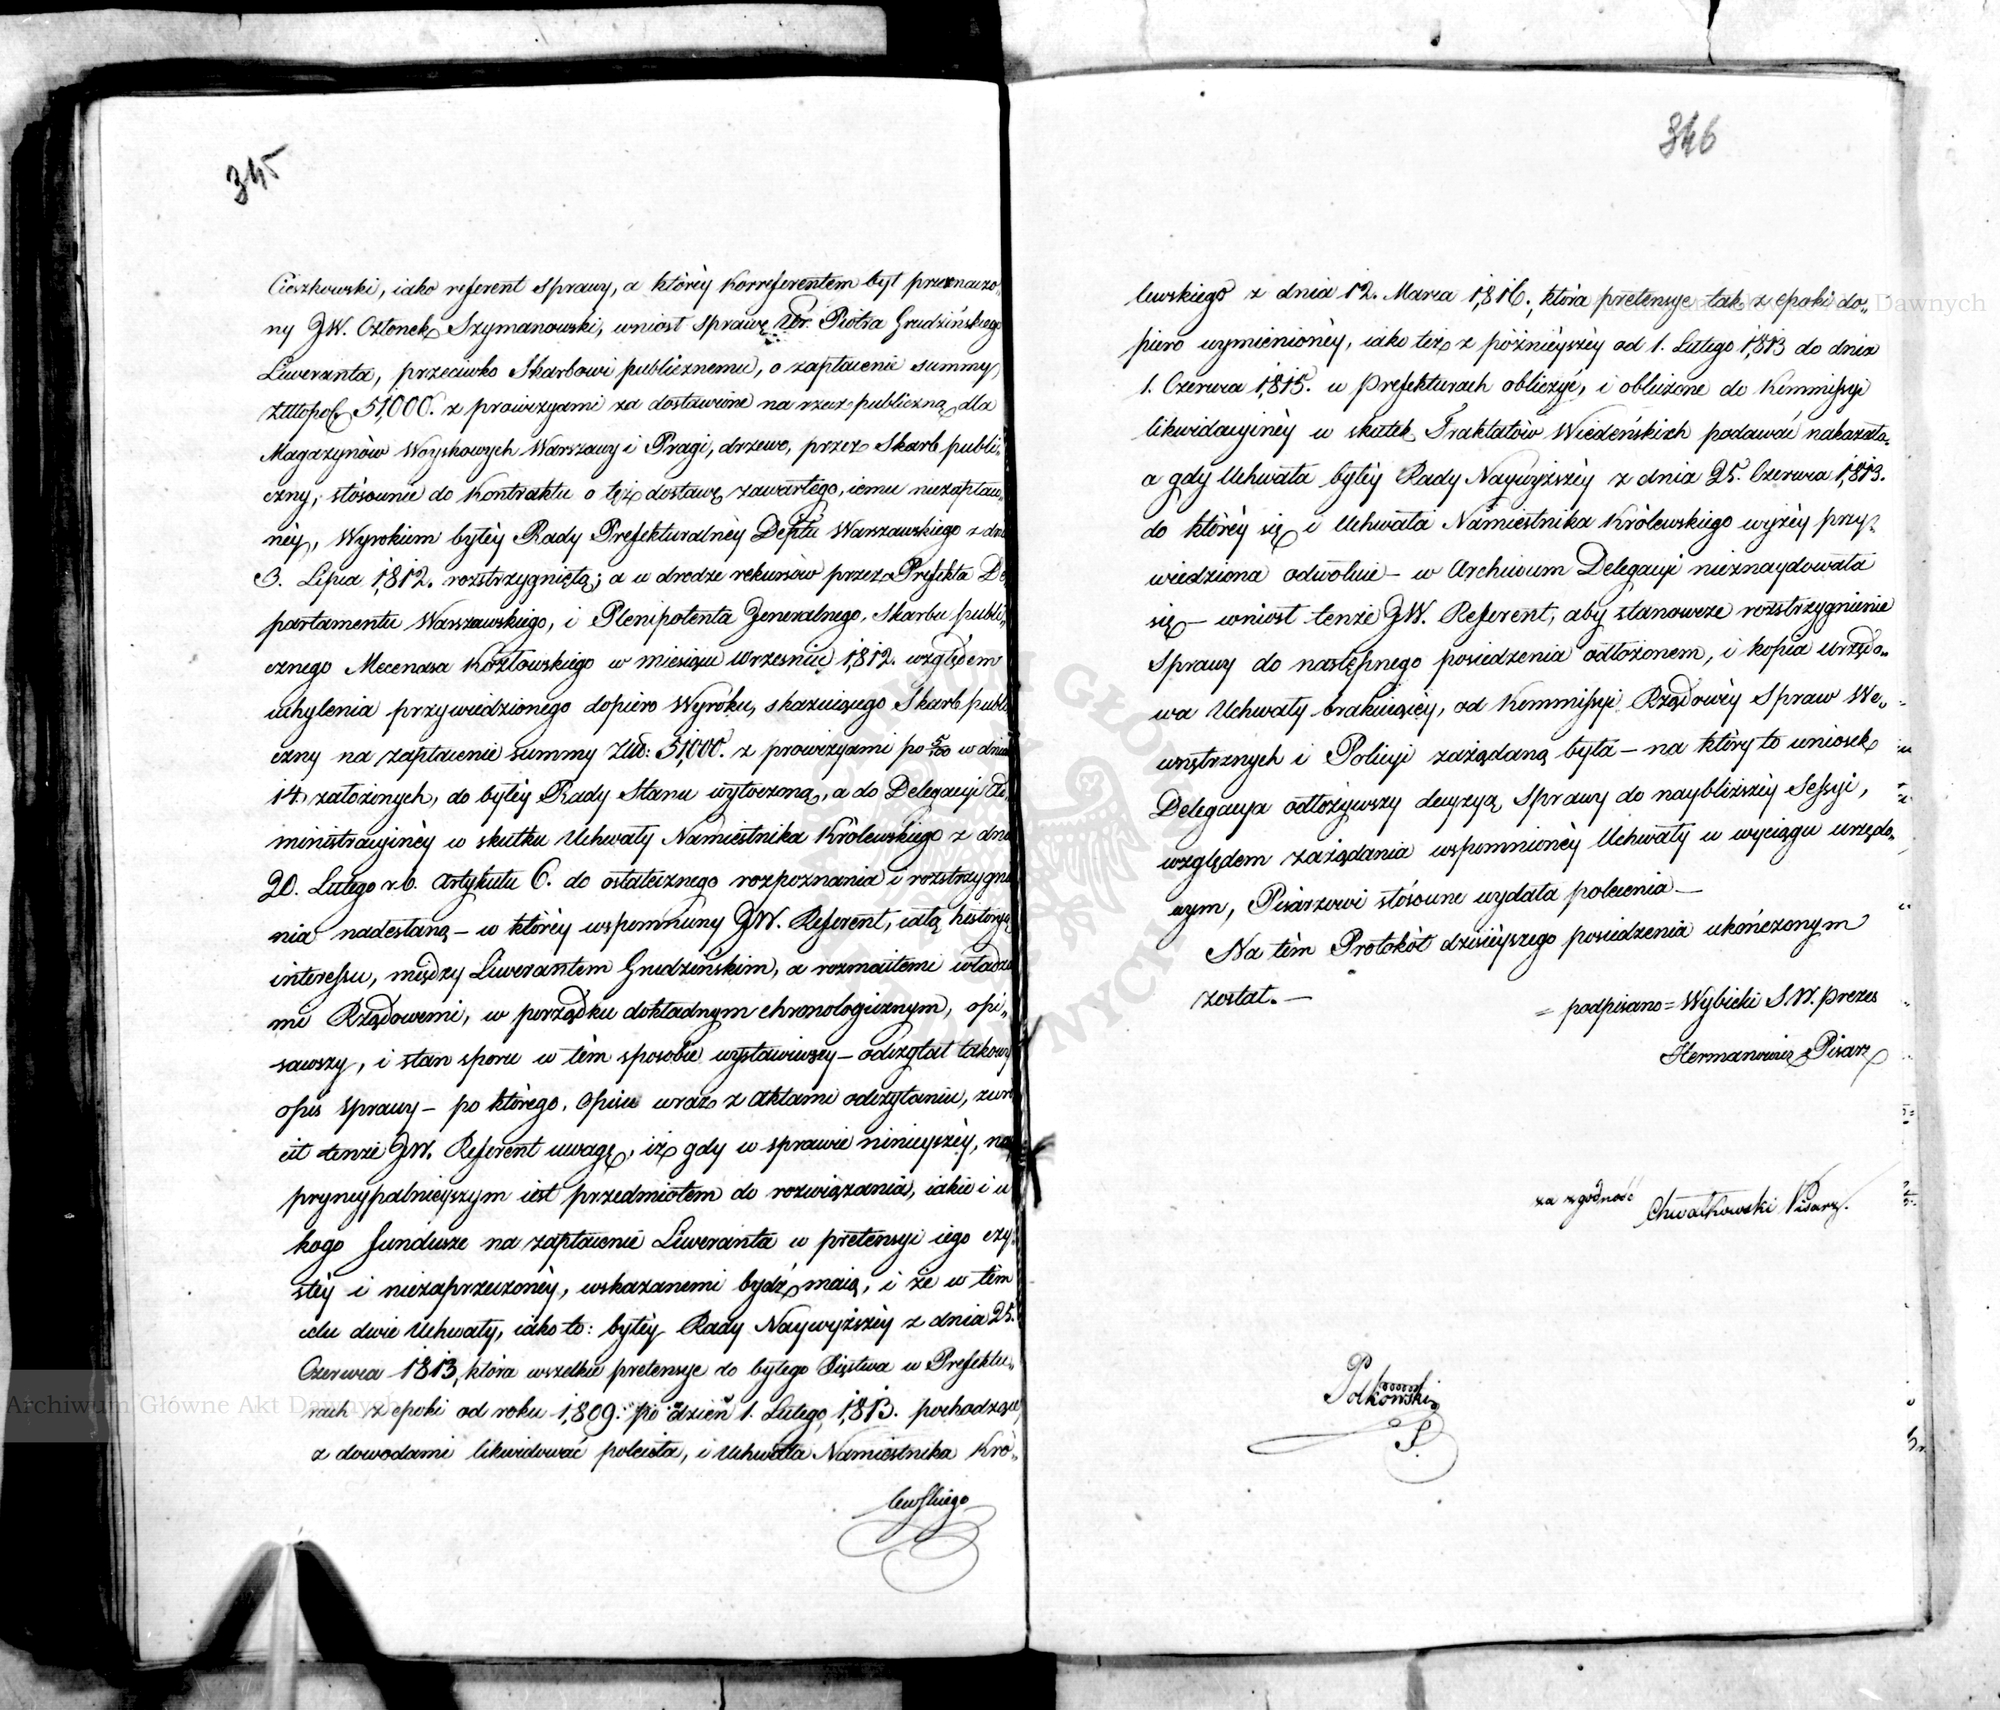 345
Cieszkowski, iako referent sprawy, a któréy Korreferentem był przeznaczo„
ny JW. Członek Szymanowski, wniosł sprawę Ur. Piotra Grudzińskiego
Liweranta, przeciwko Skarbowi publicznemu, o zapłacenie summy
Złłopol. 51,000. z prowizyami za dostawione na rzecz publiczną dla
Magazynów Woyskowych Warszawy i Pragi, drzewo, przez Skarb publi„
czny, stósownie do Kontraktu o też dostawę zawartego, iemu niezapłaco„
néy, Wyrokiem byłéy Rady Prefekturalnéy Deptu Warszawskiego z dnia
3. Lipca 1,812. rozstrzygniętą; a w drodze rekursów przez Prefekta De
partamentu Warszawskiego, i Plenipotenta Jeneralnego, Skarbu publi„
cznego Mecenasa Kozłowskiego w miesiącu Wrzesniu 1,812. względem
uchylenia przywiedzionego dopiero Wyroku, skazuiącego Skarb publi
czny na zapłacenie summy Złłb: 51,000. z prowizyami po 5/100 w dniach
14. założonych, do byłéy Rady Stanu wytoczoną, a do Delegacyi Ad„
ministracyinéy w skutku Uchwały Namiestnika Królewskiego z dnia
20. Lutego r.b. Artykułu 6. do ostatecznego rozpoznania i rozstrzygnie
nia nadesłaną – w któréy wspomniony JW. Referent, całą historyą
interessu, między Liwerantem Grudzińskim, a rozmaitemi władza
mi Rządowemi, w porządku dokładnym chronologicznym, opi„
sawszy, i stan sporu w tém sposobie wystawiwszy – odczytał takowy
opis sprawy – po którego, Opisu wraz z Aktami odczytaniu, zwró
cił tenże JW. Referent uwagę, iż gdy w sprawie ninieyszéy, nay
pryncypalnieyszym iest przedmiotem do rozwiązania, iakie i u
kogo fundusze na zapłacenie Liweranta w pretensyi iego czy„
stéy i niezaprzeczonéy, wskazanemi bydź maią, i że w tém
celu dwie Uchwały, iako to: byłéy Rady Naywyższéy z dnia 25.
Czerwca 1813, która wszelkie pretensye do byłego Xięstwa w Prefektu„
rach z epoki od roku 1,809. po dzień 1. Lutego 1,813. pochodzące,
z dowodami likwidować poleciła, i Uchwała Namiestnika Kró„
lewskiego
346
lewskiego z dnia 12. Marca 1,816., która pretensye tak z epoki do„
piero wymienionéy, iako też z późnieyszéy od 1. Lutego 1,813 do dnia
1. Czerwca 1,815. w Prefekturach obliczyć, i obliczone do Kommissyi
likwidacyinéy w skutek Traktatów Wiedeńskich podawać nakazała„
a gdy Uchwała byłéy Rady Naywyższéy z dnia 25. Czerwca 1,813.
do któréy się i Uchwała Namiestnika Królewskiego wyżéy przy„
wiedziona odwołuie – w Archiwum Delegacyi nieznaydowała
się – wniosł tenże JW. Referent, aby stanowcze rozstrzygnienie
sprawy do następnego posiedzenia odłożonem, i kopia urzędo„
wa Uchwały brakuiącéy, od Kommissyi Rządowéy Spraw We„
wnętrznych i Policyi zażądaną była – na który to wniosek
Delegacya odłożywszy decyzyą sprawy do naybliższéy Sessyi,
względem zażądania wspomnionéy Uchwały w wyciągu urzędo„
wym, Pisarzowi stósowne wydała polecenia –
Na tém Protokół dzisieyszego posiedzenia ukończonym
został. –
= podpisano = Wybicki S. W. Prezes
Hermanowicz Pisarz
za zgodność Chwałkowski Pisarz.
Polkowski
S.
Archiwum Główne Akt Dawnych